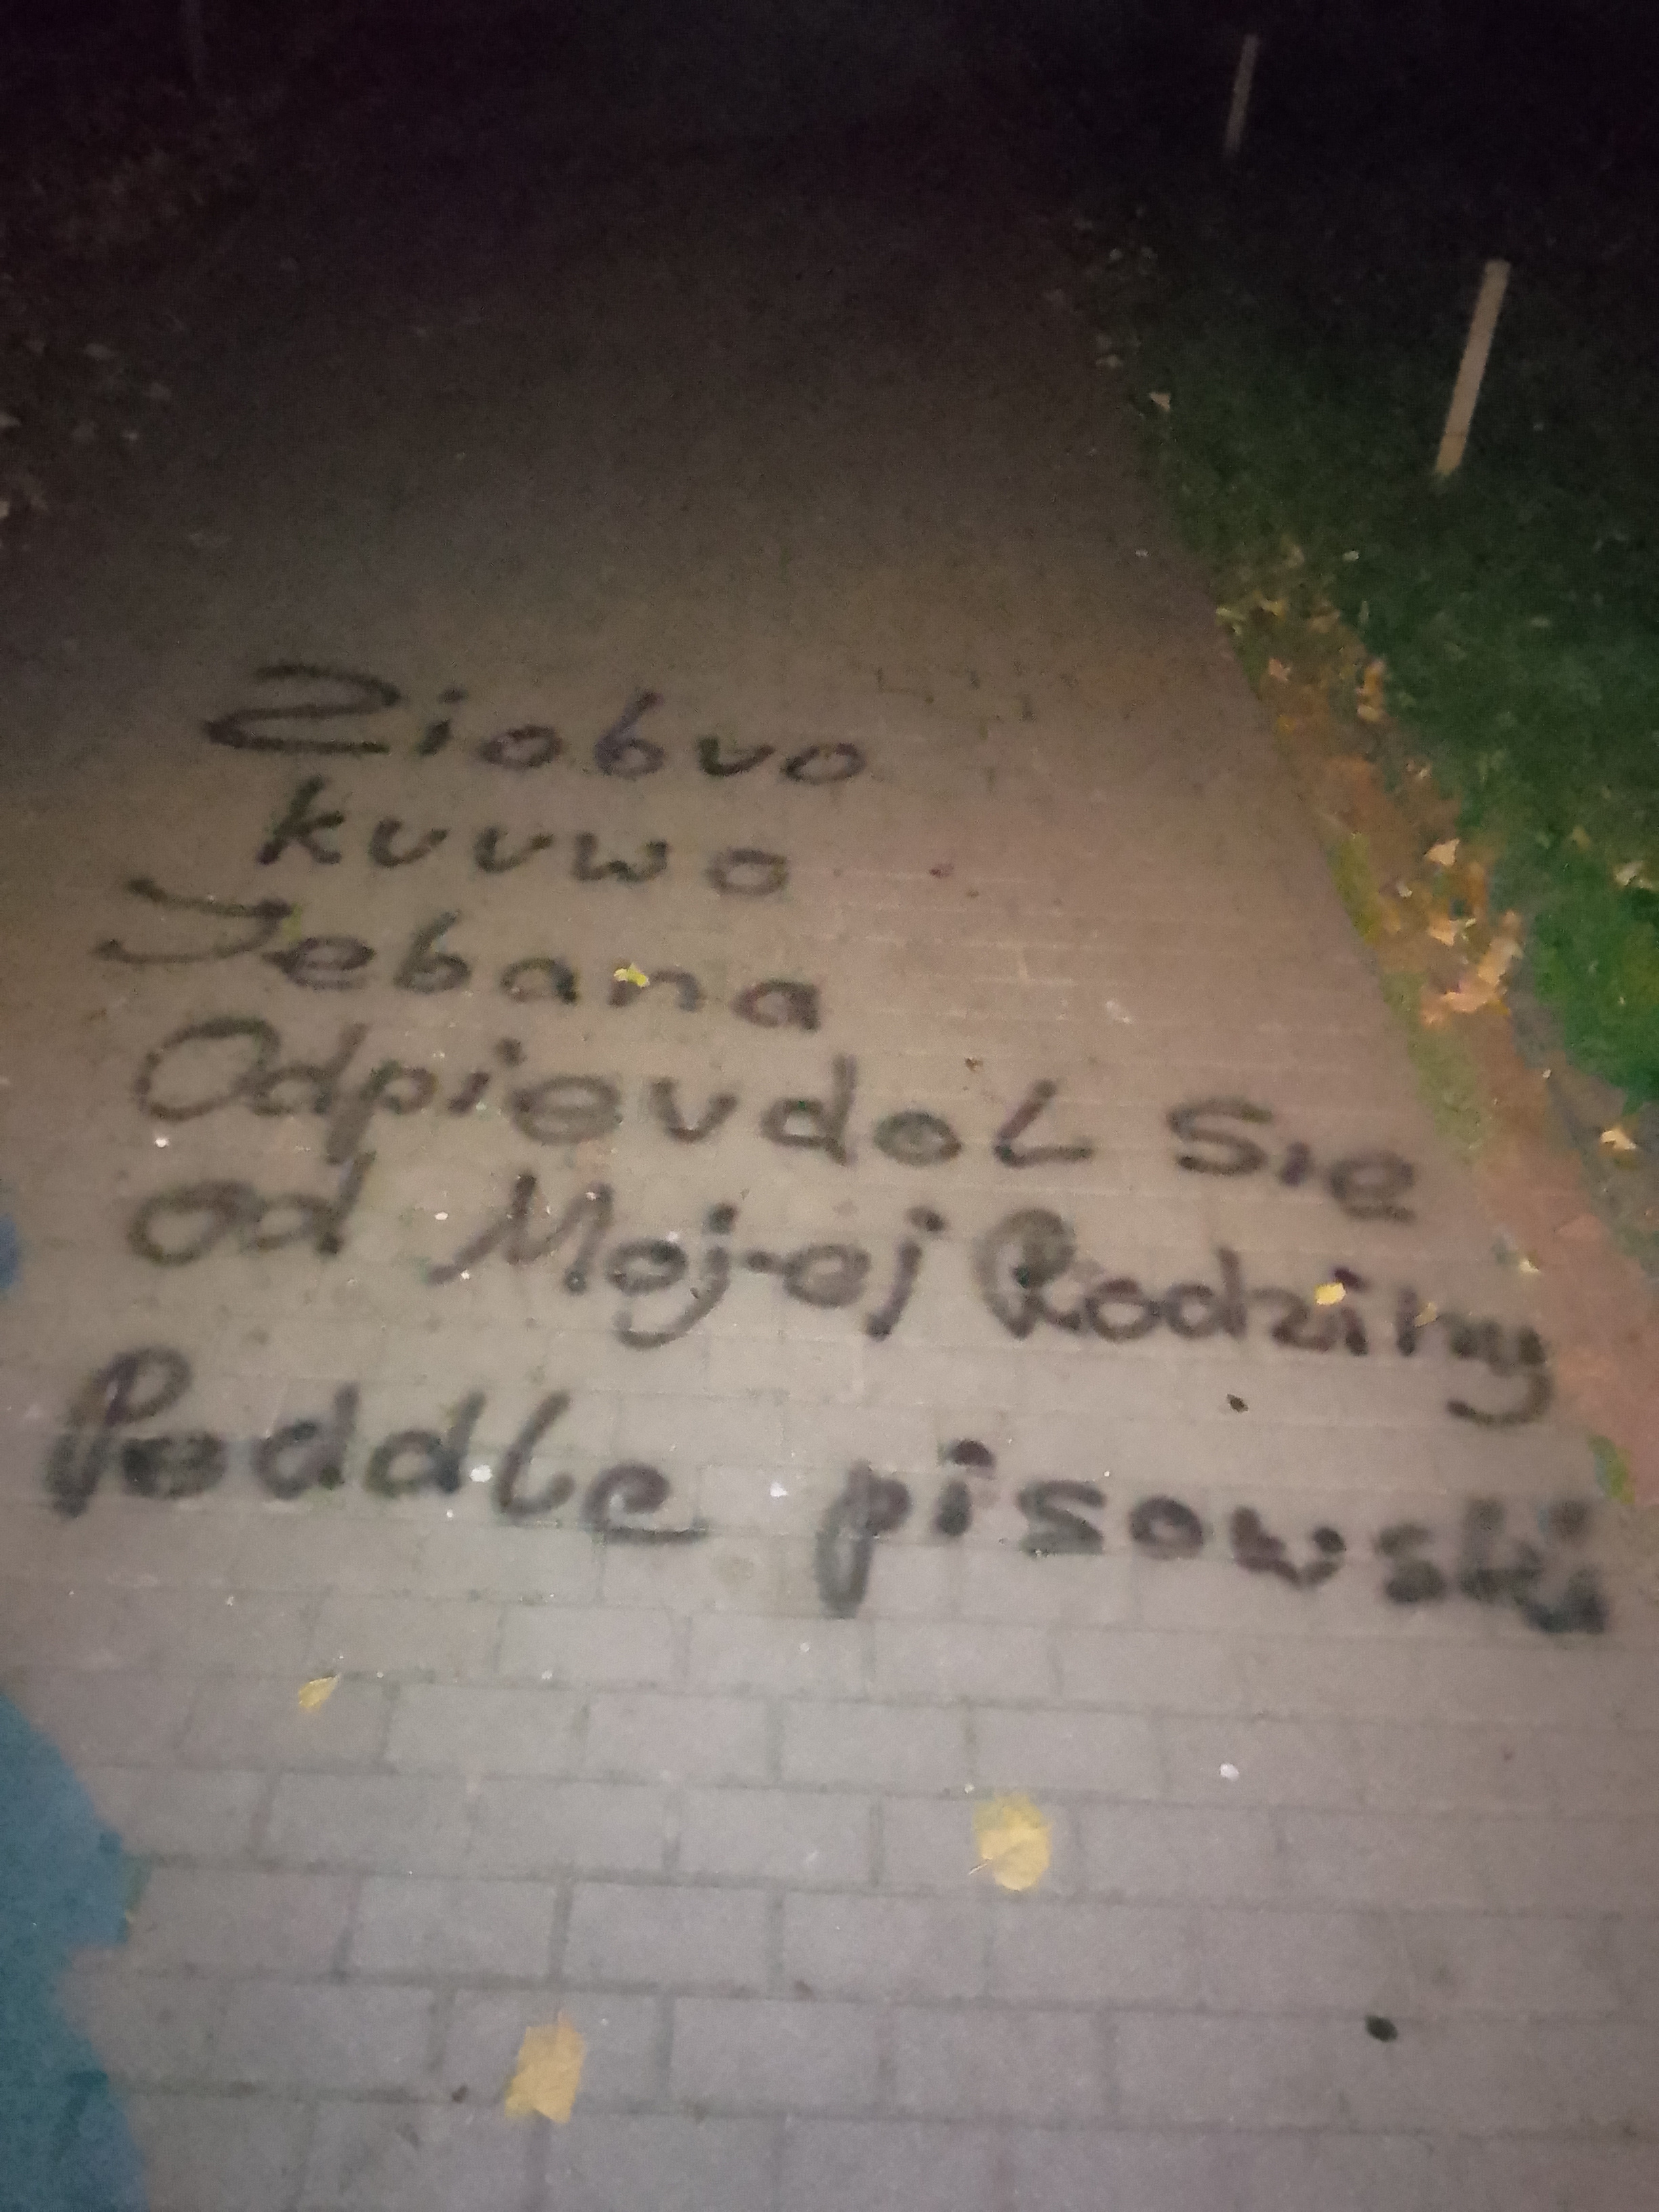 Ziobro
kurwo
Jebana
Odpierdol Sie
od Mojej Rodziny
Poddle pisowski